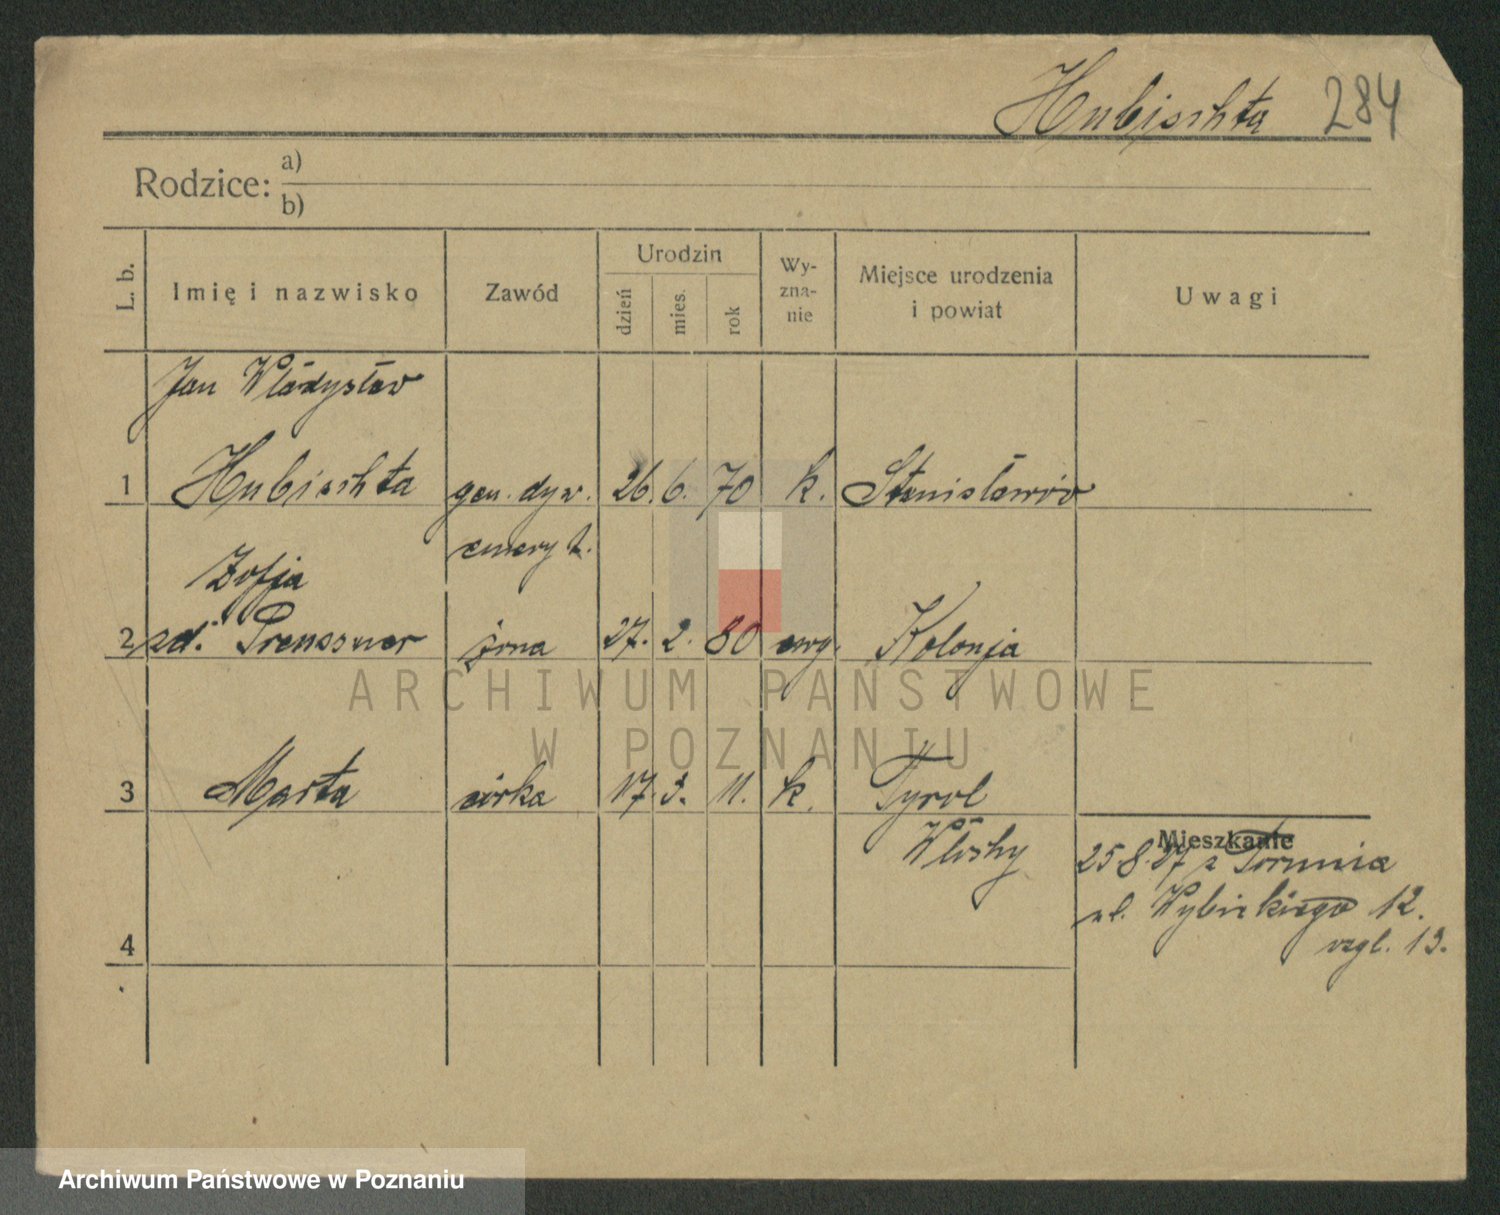 Hubischta 284
Rodzice: a)
b)
L. b. Imię i nazwisko Zawód Urodzin dzień mies. rok Wy-zna-nie Miejsce urodzenia i powiat Uwagi
Jan Władysław
1 Hubischta gen. dyw. 26. 6. 70 k. Stanisławów
emeryt.
Zofja
2 zd. Preussner żona 27. 2. 80 ewg. Kolonja
3 Marta córka 17. 3. 11. k. Tyrol
Włochy
Mieszkanie
25 8. 27 z Torunia
ul. Wybickiego 12.
wzgl. 13.
4
ARCHIWUM PAŃSTWOWE
W POZNANIU
Archiwum Państwowe w Poznaniu